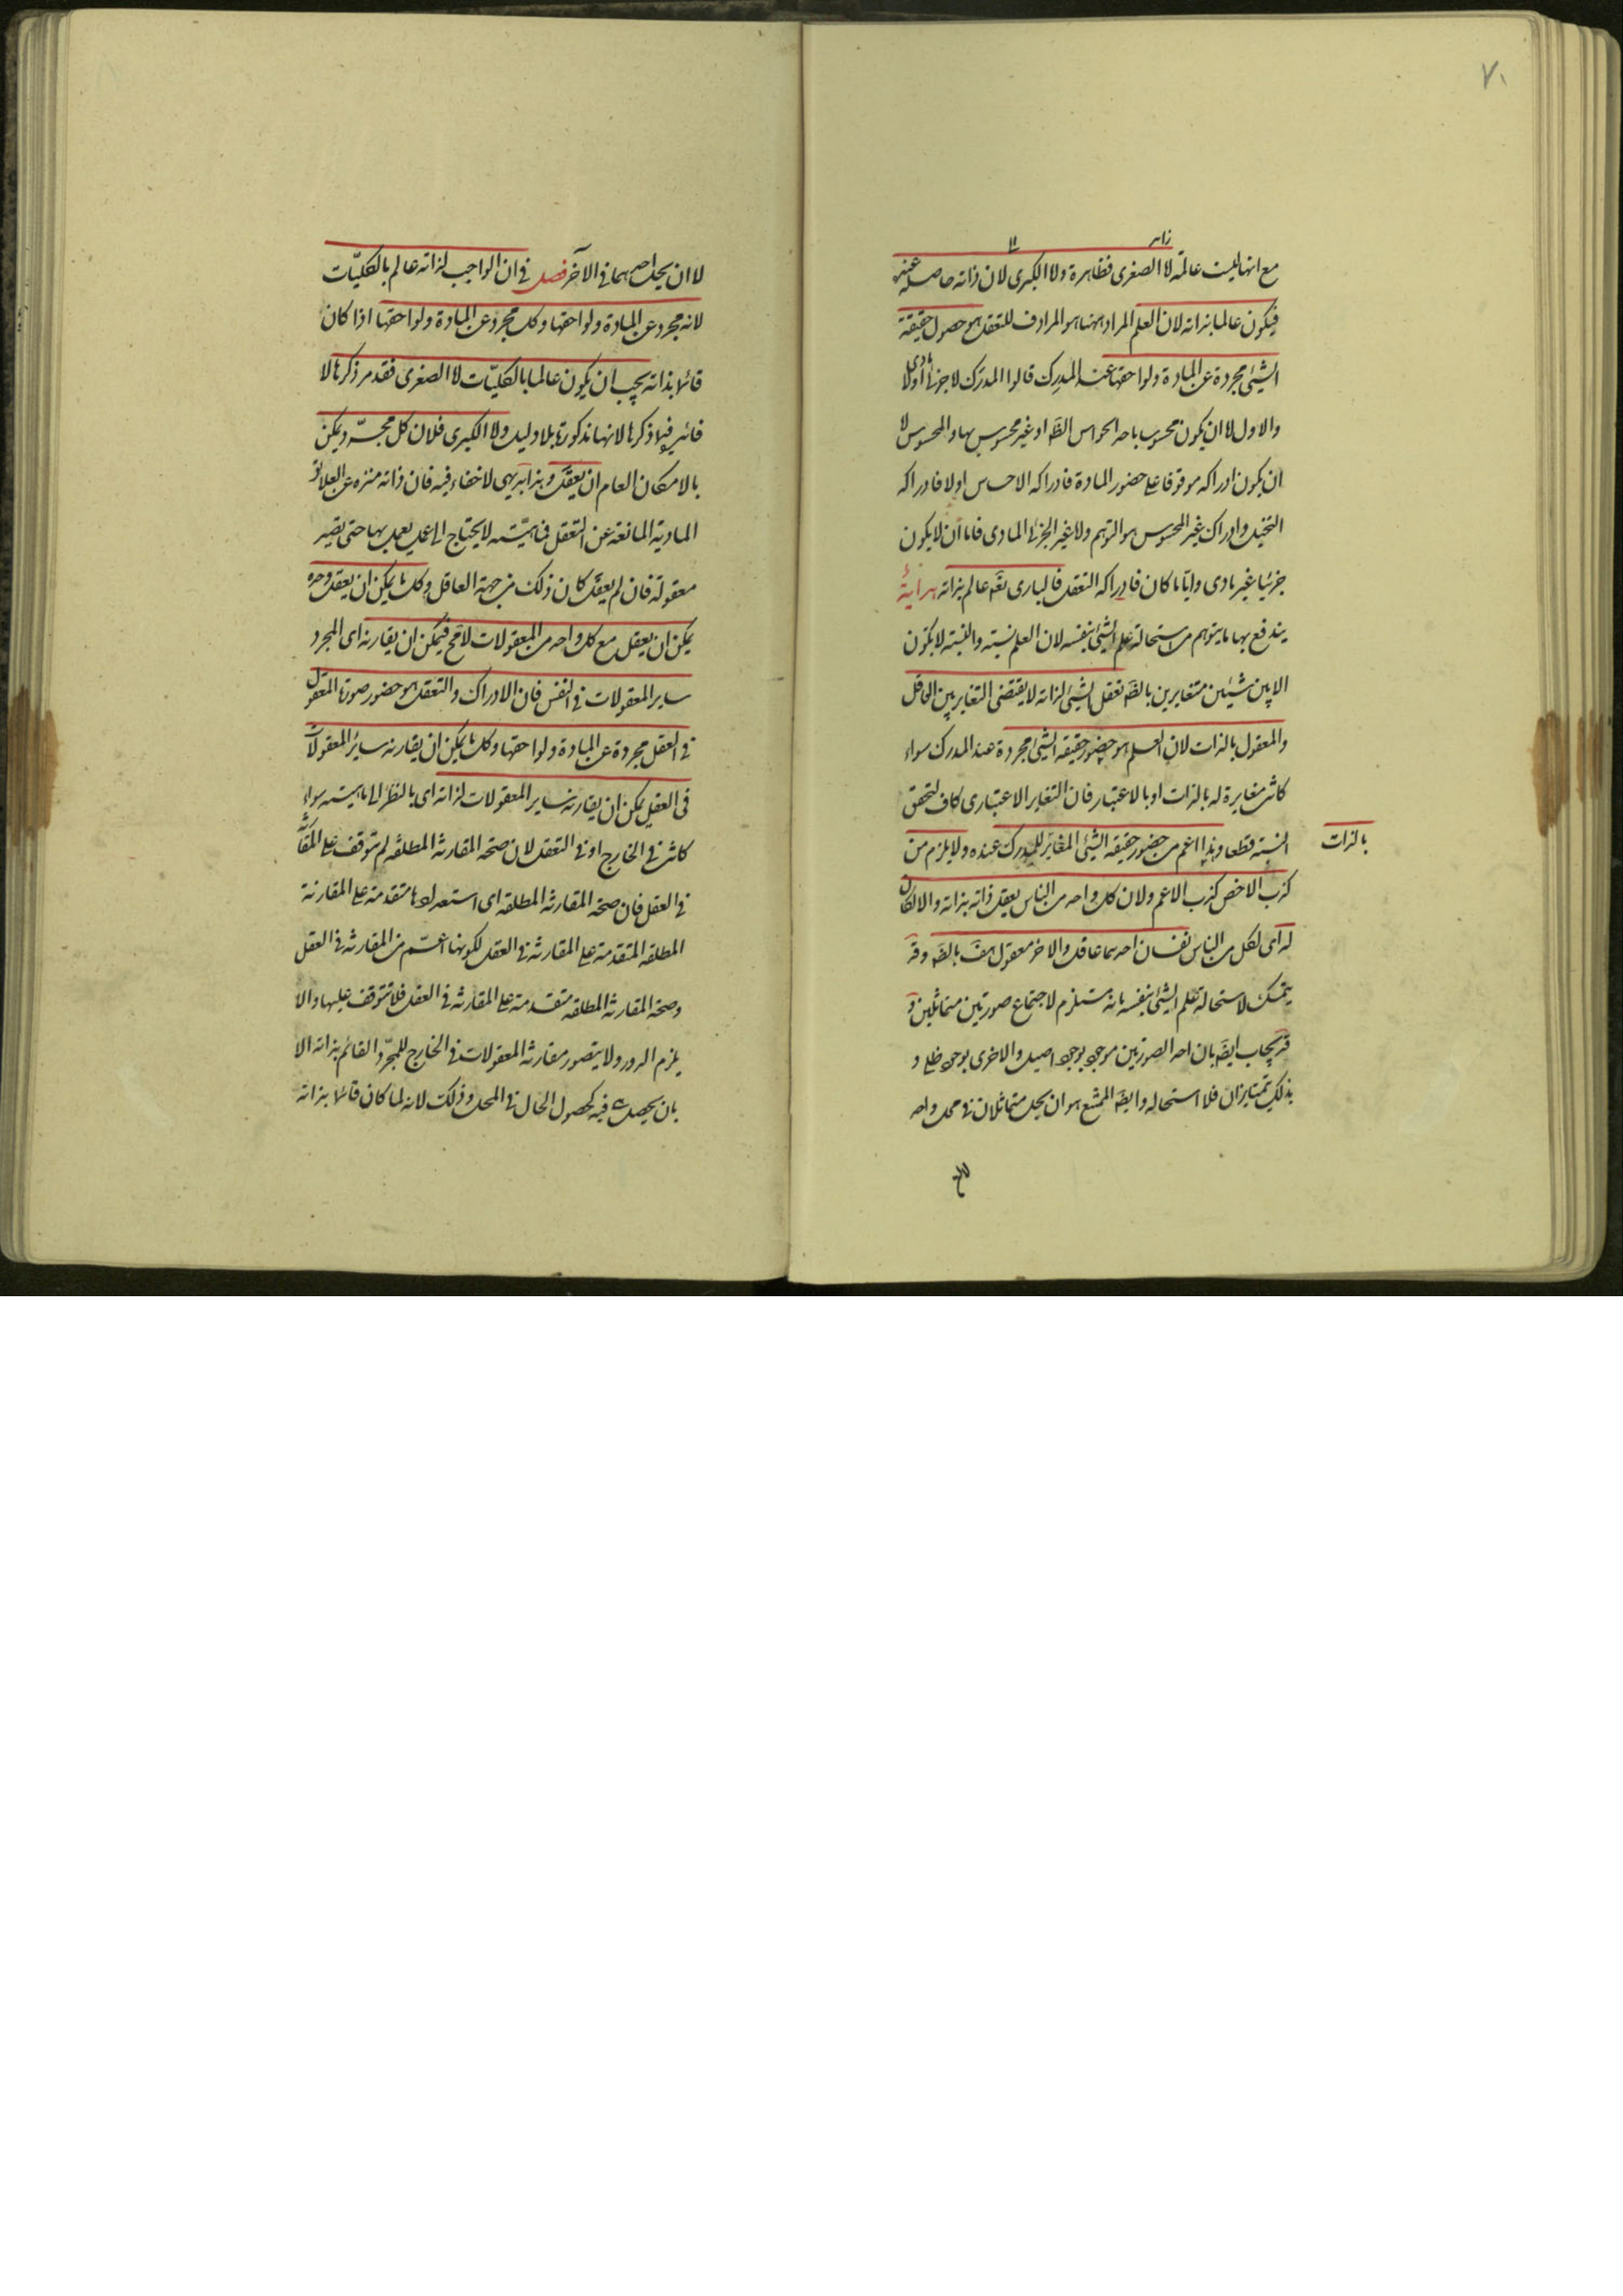 ٧١
زاید
مع انها ليست عالمة لا الصغرى فظاهرة ولا الكبرى لان ذاته حاصلة عنده
فيكون عالما بذاته لان العلم المراد ههنا هو المرادف للتعقل هو حصول حقيقة
الشئ مجردة عن المادة ولواحقها عند المدرك قالوا المدرك لا جزئ مادى اولا
والاول لا ان يكون محسوس باحد الحواس الظ او غير محسوس بها والمحسوس لا
ان يكون ادراكه موقوفا على حضور المادة فادراكه الاحساس اولا فادراكه
التخيل وادراك غير المحسوس هو التوهم ولا غير الجزئ المادى فاما ان لا يكون
جزئيا غير مادى وايا ما كان فادراكه التعقل فالبارى تعه عالم بذاته هداية
يندفع بها ما يتوهم من استحالة علم الشئ بنفسه لان العلم نسبة والنسبة لا يكون
الا بين شيئين متغايرين بالضه تعقل الشئ لذاته لا يقتضى التغاير بين العاقل
والمعقول بالذات لان العلم هو حضور حقيقة الشئ مجردة عند المدرك سواء
كانت مغايرة له بالذات او بالاعتبار فان التغاير الاعتبارى كاف لتحقق
النسبة قطعا وهذا اعم من حضور حقيقة الشئ المغاير للمدرك عنده ولا يلزم من
بالذات
كذب الاخص كذب الاعم ولان كل واحد من الناس يعقل ذاته بذاته والا لكان
له اى لكل من الناس نفسان احدهما عاقل والاخر معقول هف بالضه وقد
يتمسك لاستحالة علم الشئ بنفسه بانه مستلزم لاجتماع صورتين متماثلين و
قد يجاب ايضه بان احد الصورتين موجود بوجود اصيل والاخرى بوجود ظلى و
بذلك تمتازان فلا استحالة وايضه الممتنع هو ان يحل متماثلان فى محل واحد
لا ان يحل احدهما فى الآخر فصل فى ان الواجب لذاته عالم بالكليات
لانه مجرد عن المادة ولواحقها وكل مجرد عن المادة ولواحقها اذا كان
قائما بذاته يجب ان يكون عالما بالكليات لا الصغرى فقد مر ذكرها لا
فائدة فى ذكرها لانها مذكورة بلا دليل ولا الكبرى فلان كل مجرد يمكن
بالامكان العام ان يعقل وهذا بديهى لا خفاء فيه فان ذاته منزه عن العلائق
المادية المانعة عن التعقل فماهيته لا يحتاج الى عمل يعمل بها حتى يصير
معقولة فان لم يعقل كان ذلك من جهة العاقل وكل ما يمكن ان يعقل وحده
يمكن ان يعقل مع كل واحد من المعقولات لا مح فيمكن ان يقارنه اى المجرد
ساير المعقولات فى النفس فان الادراك والتعقل هو حضور صورة المعقول
فى العقل مجردة عن المادة ولواحقها وكل ما يمكن ان يقارنه ساير المعقولات
فى العقل يمكن ان يقارنه ساير المعقولات لذاته اى بالنظر الى ماهيته سواء
كانت فى الخارج او فى التعقل لان صحة المقارنة المطلقة لم تتوقف على المقارنة
فى العقل فان صحة المقارنة المطلقة اى استعدادها متقدمة على المقارنة
المطلقة المتقدمة على المقارنة فى العقل لكونها اعم من المقارنة فى العقل
وصحة المقارنة المطلقة متقدمة على المقارنة فى العقل فلا تتوقف عليها والا
يلزم الدور ولا يتصور مقارنة المعقولات فى الخارج للمجرد القائم بذاته الا
بان يحصل فيه حصول الحال فى المحل وذلك لانه لما كان قائما بذاته